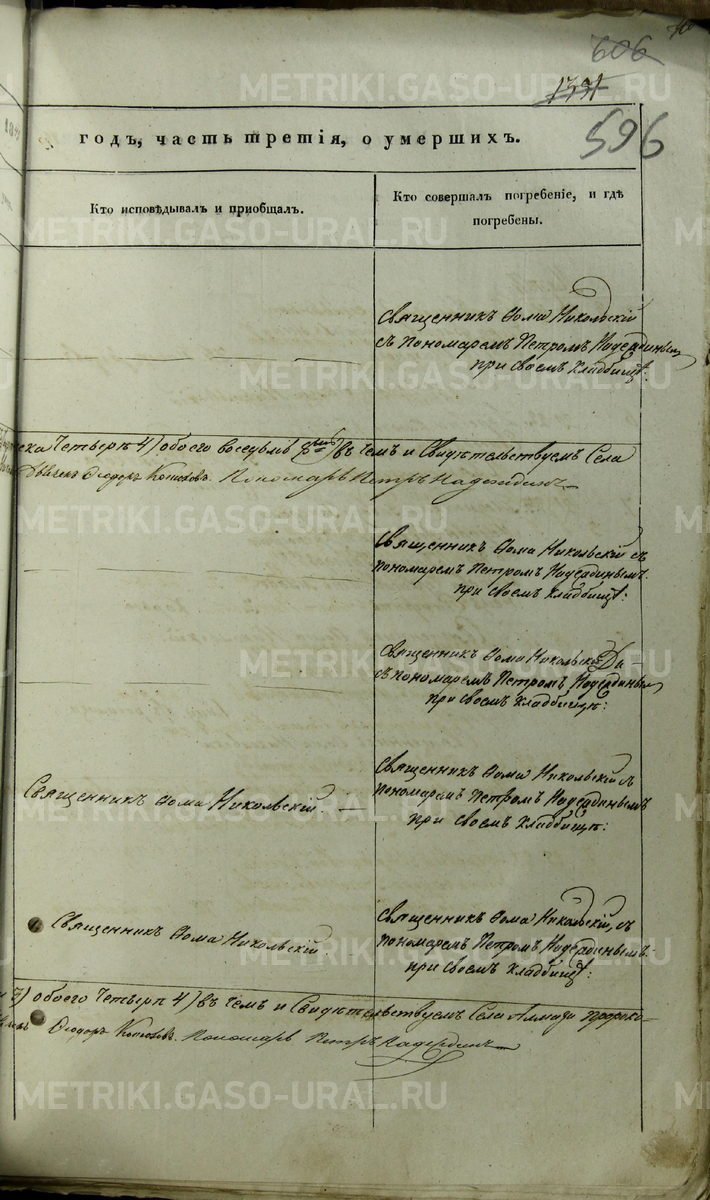 606
1371
596
годъ, часть третія, о умершихъ.
Кто исповѣдывалъ и приобщалъ.
Кто совершалъ погребеніе, и гдѣ
погребены.
Священникъ Ѳома Никольскій
съ пономаремъ Петромъ Надеждинымъ
при своемъ кладбищѣ.
Четверо 4) обоего восемь въ чемъ и Свидѣтельствуемъ Села
Дьячекъ Ѳеодоръ Пономарь Петръ Надеждинъ
Священникъ Ѳома Никольскій съ
пономаремъ Петромъ Надеждинымъ
при своемъ кладбищѣ:
Священникъ Ѳома Никольскій
съ пономаремъ Петромъ Надеждинымъ
при своемъ кладбищѣ:
Священникъ Ѳома Никольскій.
Священникъ Ѳома Никольскій съ
пономаремъ Петромъ Надеждинымъ
при своемъ кладбищѣ:
Священникъ Ѳома Никольскій.
Священникъ Ѳома Никольскій, съ
пономаремъ Петромъ Надеждинымъ
при своемъ кладбищѣ:
3) обоего Четверо 4) въ чемъ и Свидѣтельствуемъ Села
Ѳеодоръ Пономарь Петръ Надеждинъ
METRIKI.GASO-URAL.RU